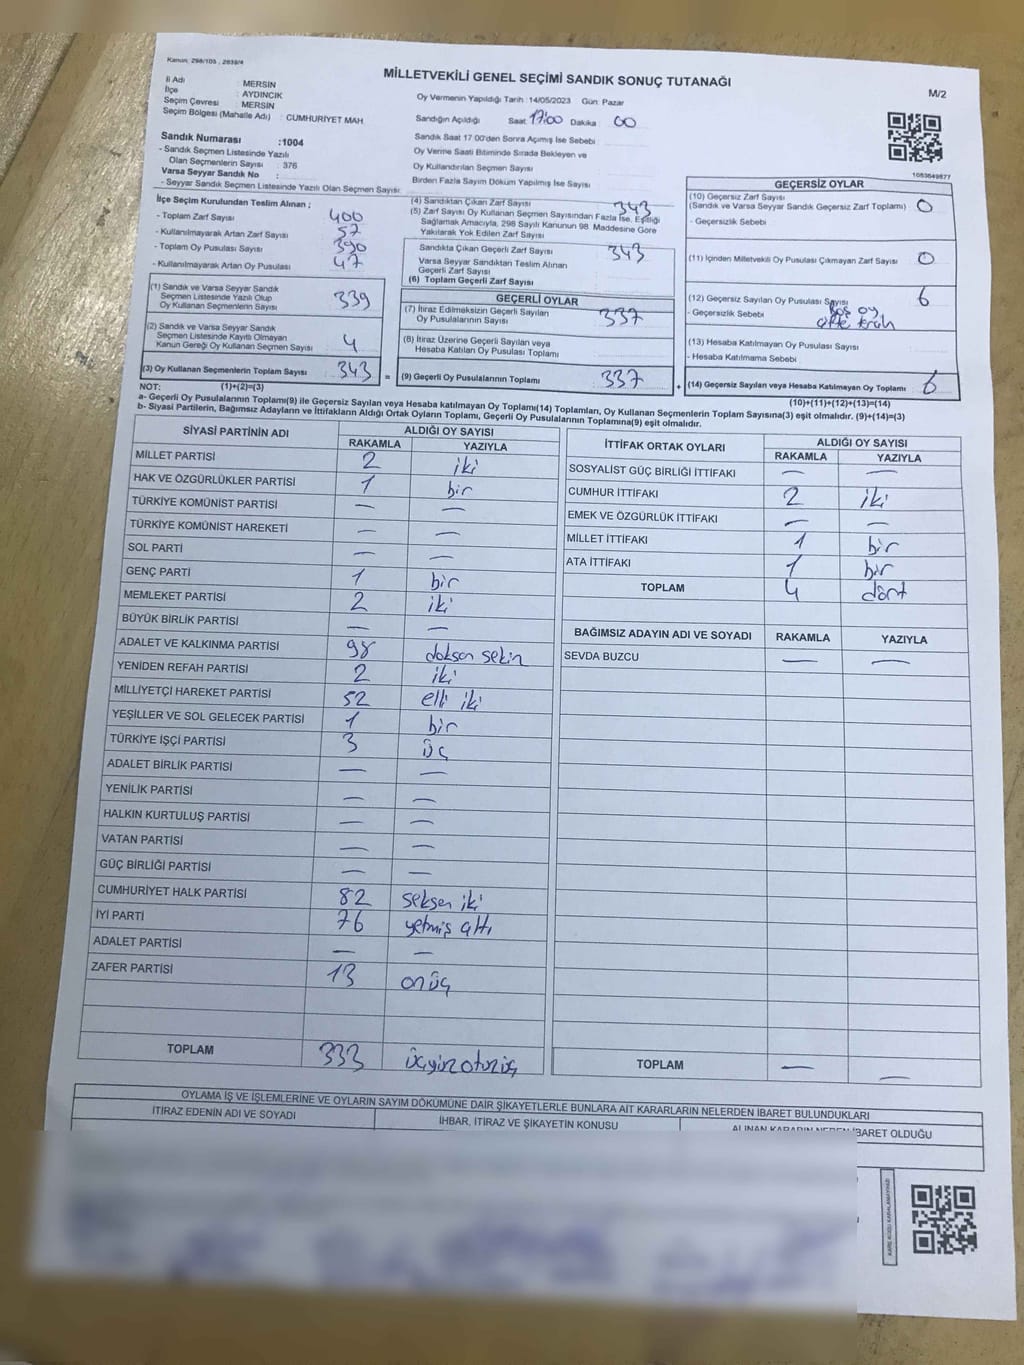 Kanun: 298/105 , 2839/4
MİLLETVEKİLİ GENEL SEÇİMİ SANDIK SONUÇ TUTANAĞI
M/2
İl Adı : MERSİN
İlçe : AYDINCIK
Seçim Çevresi : MERSİN
Seçim Bölgesi (Mahalle Adı) : CUMHURİYET MAH.
Oy Vermenin Yapıldığı Tarih :14/05/2023 Gün: Pazar
Sandığın Açıldığı Saat 17:00 Dakika 00
Sandık Saat 17 00'den Sonra Açılmış İse Sebebi
Oy Verme Saati Bitiminde Sırada Bekleyen ve
Oy Kullandırılan Seçmen Sayısı
Birden Fazla Sayım Döküm Yapılmış İse Sayısı
Sandık Numarası :1004
- Sandık Seçmen Listesinde Yazılı
Olan Seçmenlerin Sayısı : 376
Varsa Seyyar Sandık No :
- Seyyar Sandık Seçmen Listesinde Yazılı Olan Seçmen Sayısı:
İlçe Seçim Kurulundan Teslim Alınan ;
- Toplam Zarf Sayısı 400
- Kullanılmayarak Artan Zarf Sayısı 57
- Toplam Oy Pusulası Sayısı 390
- Kullanılmayarak Artan Oy Pusulası 47
(1) Sandık ve Varsa Seyyar Sandık
Seçmen Listesinde Yazılı Olup
Oy Kullanan Seçmenlerin Sayısı 339
(2) Sandık ve Varsa Seyyar Sandık
Seçmen Listesinde Kayıtlı Olmayan
Kanun Gereği Oy Kullanan Seçmen Sayısı 4
(3) Oy Kullanan Seçmenlerin Toplam Sayısı 343 =
(4) Sandıktan Çıkan Zarf Sayısı 343
(5) Zarf Sayısı Oy Kullanan Seçmen Sayısından Fazla İse, Eşitliği
Sağlamak Amacıyla, 298 Sayılı Kanunun 98 Maddesine Göre
Yakılarak Yok Edilen Zarf Sayısı
Sandıkta Çıkan Geçerli Zarf Sayısı 343
Varsa Seyyar Sandıktan Teslim Alınan
Geçerli Zarf Sayısı
(6) Toplam Geçerli Zarf Sayısı
GEÇERLİ OYLAR
(7) İtiraz Edilmeksizin Geçerli Sayılan
Oy Pusulalarının Sayısı 337
(8) İtiraz Üzerine Geçerli Sayılan veya
Hesaba Katılan Oy Pusulası Toplamı
(9) Geçerli Oy Pusulalarının Toplamı 337 +
1083649877
GEÇERSİZ OYLAR
(10) Geçersiz Zarf Sayısı
(Sandık ve Varsa Seyyar Sandık Geçersiz Zarf Toplamı) 0
- Geçersizlik Sebebi
(11) İçinden Milletvekili Oy Pusulası Çıkmayan Zarf Sayısı 0
(12) Geçersiz Sayılan Oy Pusulası Sayısı 6
- Geçersizlik Sebebi Boş oy
(13) Hesaba Katılmayan Oy Pusulası Sayısı
- Hesaba Katılmama Sebebi
(14) Geçersiz Sayılan veya Hesaba Katılmayan Oy Toplamı 6
NOT: (1)+(2)=(3)
(10)+(11)+(12)+(13)=(14)
a- Geçerli Oy Pusulalarının Toplamı(9) ile Geçersiz Sayılan veya Hesaba katılmayan Oy Toplamı(14) Toplamları, Oy Kullanan Seçmenlerin Toplam Sayısına(3) eşit olmalıdır. (9)+(14)=(3)
b- Siyasi Partilerin, Bağımsız Adayların ve İttifakların Aldığı Ortak Oyların Toplamı, Geçerli Oy Pusulalarının Toplamına(9) eşit olmalıdır.
SİYASİ PARTİNİN ADI ALDIĞI OY SAYISI
RAKAMLA YAZIYLA
MİLLET PARTİSİ 2 iki
HAK VE ÖZGÜRLÜKLER PARTİSİ 1 bir
TÜRKİYE KOMÜNİST PARTİSİ — —
TÜRKİYE KOMÜNİST HAREKETİ — —
SOL PARTİ — —
GENÇ PARTİ 1 bir
MEMLEKET PARTİSİ 2 iki
BÜYÜK BİRLİK PARTİSİ — —
ADALET VE KALKINMA PARTİSİ 98 doksan sekin
YENİDEN REFAH PARTİSİ 2 iki
MİLLİYETÇİ HAREKET PARTİSİ 52 elli iki
YEŞİLLER VE SOL GELECEK PARTİSİ 1 bir
TÜRKİYE İŞÇİ PARTİSİ 3 üç
ADALET BİRLİK PARTİSİ — —
YENİLİK PARTİSİ — —
HALKIN KURTULUŞ PARTİSİ — —
VATAN PARTİSİ — —
GÜÇ BİRLİĞİ PARTİSİ — —
CUMHURİYET HALK PARTİSİ 82 seksen iki
İYİ PARTİ 76 yetmiş altı
ADALET PARTİSİ — —
ZAFER PARTİSİ 13 onüç
TOPLAM 333 üçyüzotuzüç
İTTİFAK ORTAK OYLARI ALDIĞI OY SAYISI
RAKAMLA YAZIYLA
SOSYALİST GÜÇ BİRLİĞİ İTTİFAKI — —
CUMHUR İTTİFAKI 2 iki
EMEK VE ÖZGÜRLÜK İTTİFAKI — —
MİLLET İTTİFAKI 1 bir
ATA İTTİFAKI 1 bir
TOPLAM 4 dört
BAĞIMSIZ ADAYIN ADI VE SOYADI RAKAMLA YAZIYLA
SEVDA BUZCU — —
TOPLAM — —
OYLAMA İŞ VE İŞLEMLERİNE VE OYLARIN SAYIM DÖKÜMÜNE DAİR ŞİKAYETLERLE BUNLARA AİT KARARLARIN NELERDEN İBARET BULUNDUKLARI
İTİRAZ EDENİN ADI VE SOYADI İHBAR, İTİRAZ VE ŞİKAYETİN KONUSU ALINAN KARARIN NEDEN İBARET OLDUĞU
KARE KODU KARALAMAYINIZ!